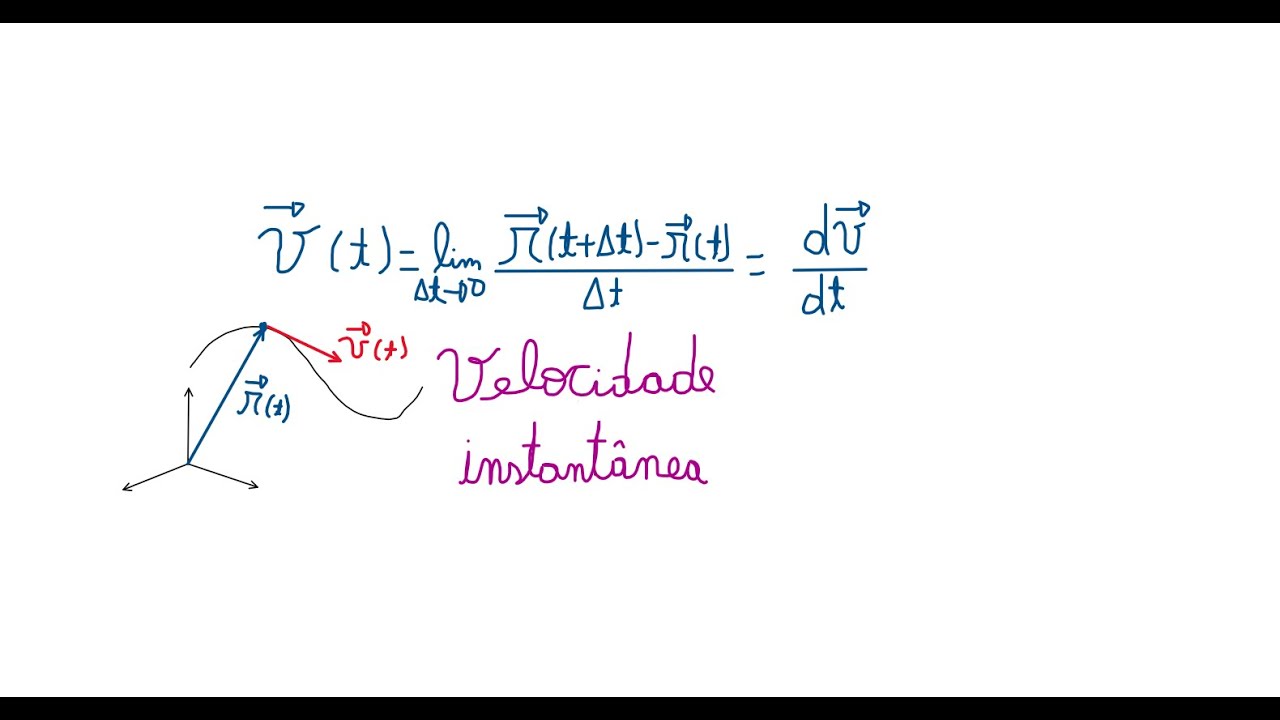 v⃗(t) = lim Δt→0 (r⃗(t+Δt) - r⃗(t)) / Δt = dv⃗/dt
v⃗(t)
r⃗(t)
Velocidade
instantânea